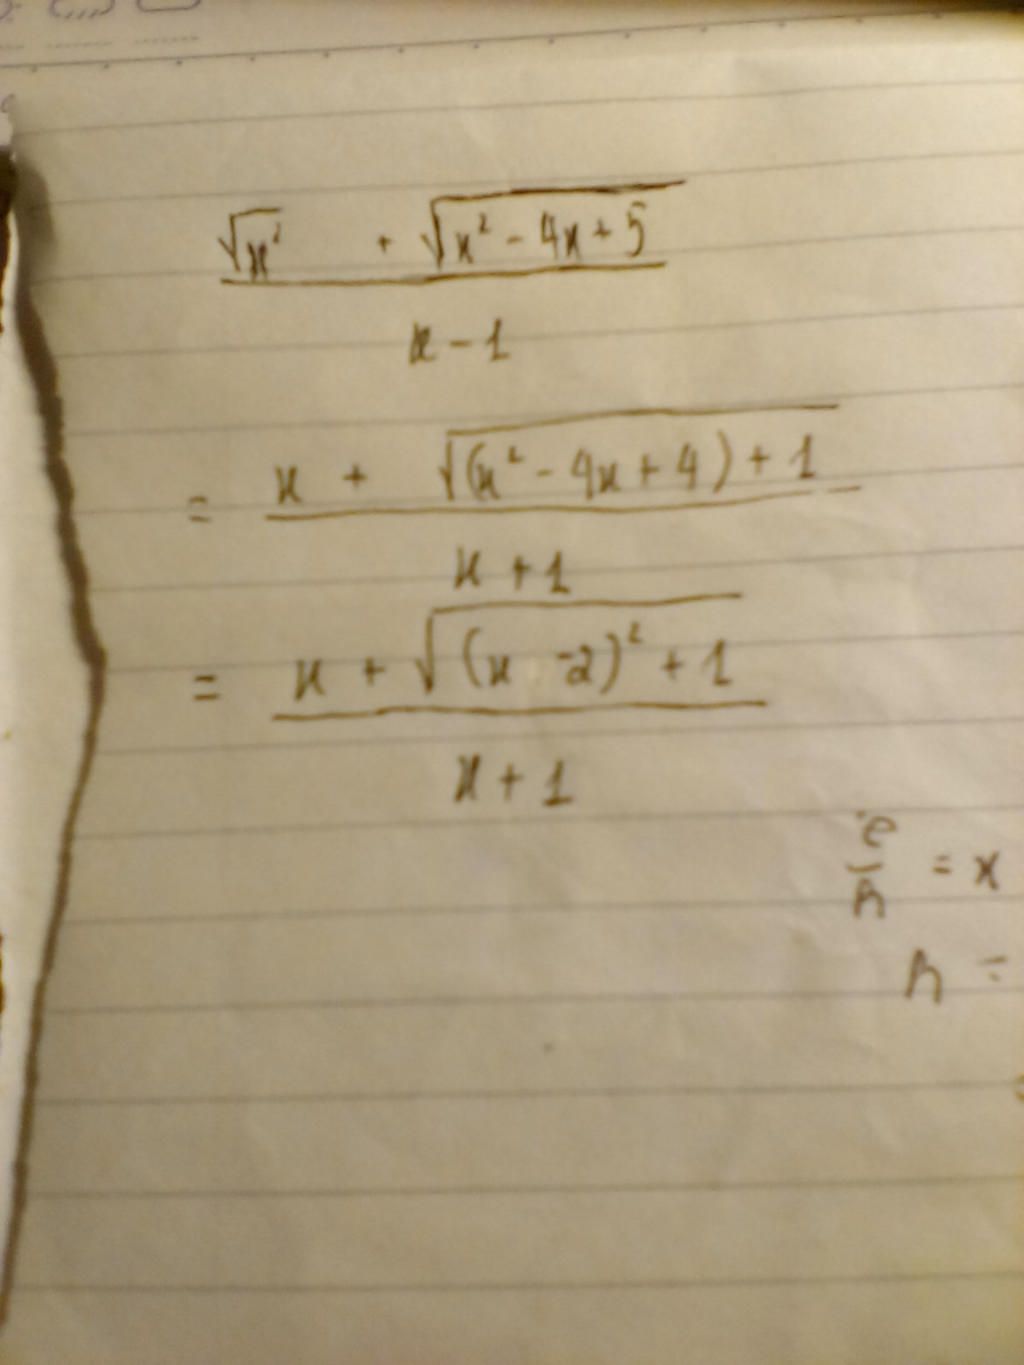 √x² + √x² - 4x + 5
x - 1
= x + √(x² - 4x + 4) + 1
x + 1
= x + √(x - 2)² + 1
x + 1
e/h = x
h =